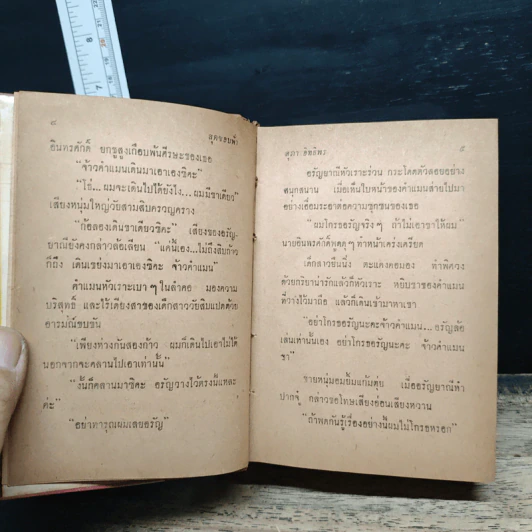 ๘
สุดขอบฟ้า
อินทรศักดิ์ ยกชูสูงเกือบพ้นศีรษะของเธอ
"จ้าวคำแมนเดินมาเอาเองซิคะ"
"โธ่... ผมจะเดินไปได้ยังไง... ผมมีขาเดียว"
เสียงหนุ่มใหญ่วัยสามสิบครวญคราง
"ก็ลองเดินขาเดียวซิคะ" เสียงของอรัญ-
ญาณียังคงกล่าวล้อเลียน "แค่นี้เอง...ไม่ถึงสิบก้าว
ก็ถึง เดินเขย่งมาเอาเองซิคะ จ้าวคำแมน"
คำแมนหัวเราะเบา ๆ ในลำคอ มองความ
บริสุทธิ์ และไร้เดียงสาของเด็กสาววัยสิบแปดด้วย
อารมณ์ขบขัน
"เพียงห่างกันสองก้าว ผมก็เดินไปเอาไม่ได้
นอกจากจะคลานไปเอาเท่านั้น"
"งั้นก็คลานมาซิคะ อรัญวางไว้ตรงนี้แหละ
ค่ะ"
"อย่าทารุณผมเลยอรัญ"
สุภา
๙
อรัญญาณีหัวเราะร่วน กระโดดตัวลอยอย่าง
สนุกสนาน เมื่อเห็นใบหน้าของคำแมนส่ายไปมา
อย่างเอือมระอาต่อความซุกซนของเธอ
"ผมโกรธอรัญจริง ๆ ถ้าไม่เอาขาให้ผม"
นายอินทรศักดิ์พูดๆ ทำหน้าเคร่งเครียด
เด็กสาวยืนนิ่ง ตะแคงคอมอง ทำพิศวง
ด้วยกริยาน่ารักแล้วก็หัวเราะ หยิบขาของคำแมน
ที่วางไว้มาถือ แล้วก็เดินเข้ามาหาเขา
"อย่าโกรธอรัญนะคะจ้าวคำแมน... อรัญล้อ
เล่นเท่านั้นเอง อย่าโกรธอรัญนะคะ จ้าวคำแมน
ขา"
ชายหนุ่มอมยิ้มแก้มตุ่ย เมื่ออรัญญาณีทำ
ปากจู๋ กล่าวขอโทษเสียงอ่อนเสียงหวาน
"ถ้าพูดกันรู้เรื่องอย่างนี้ผมไม่โกรธหรอก"